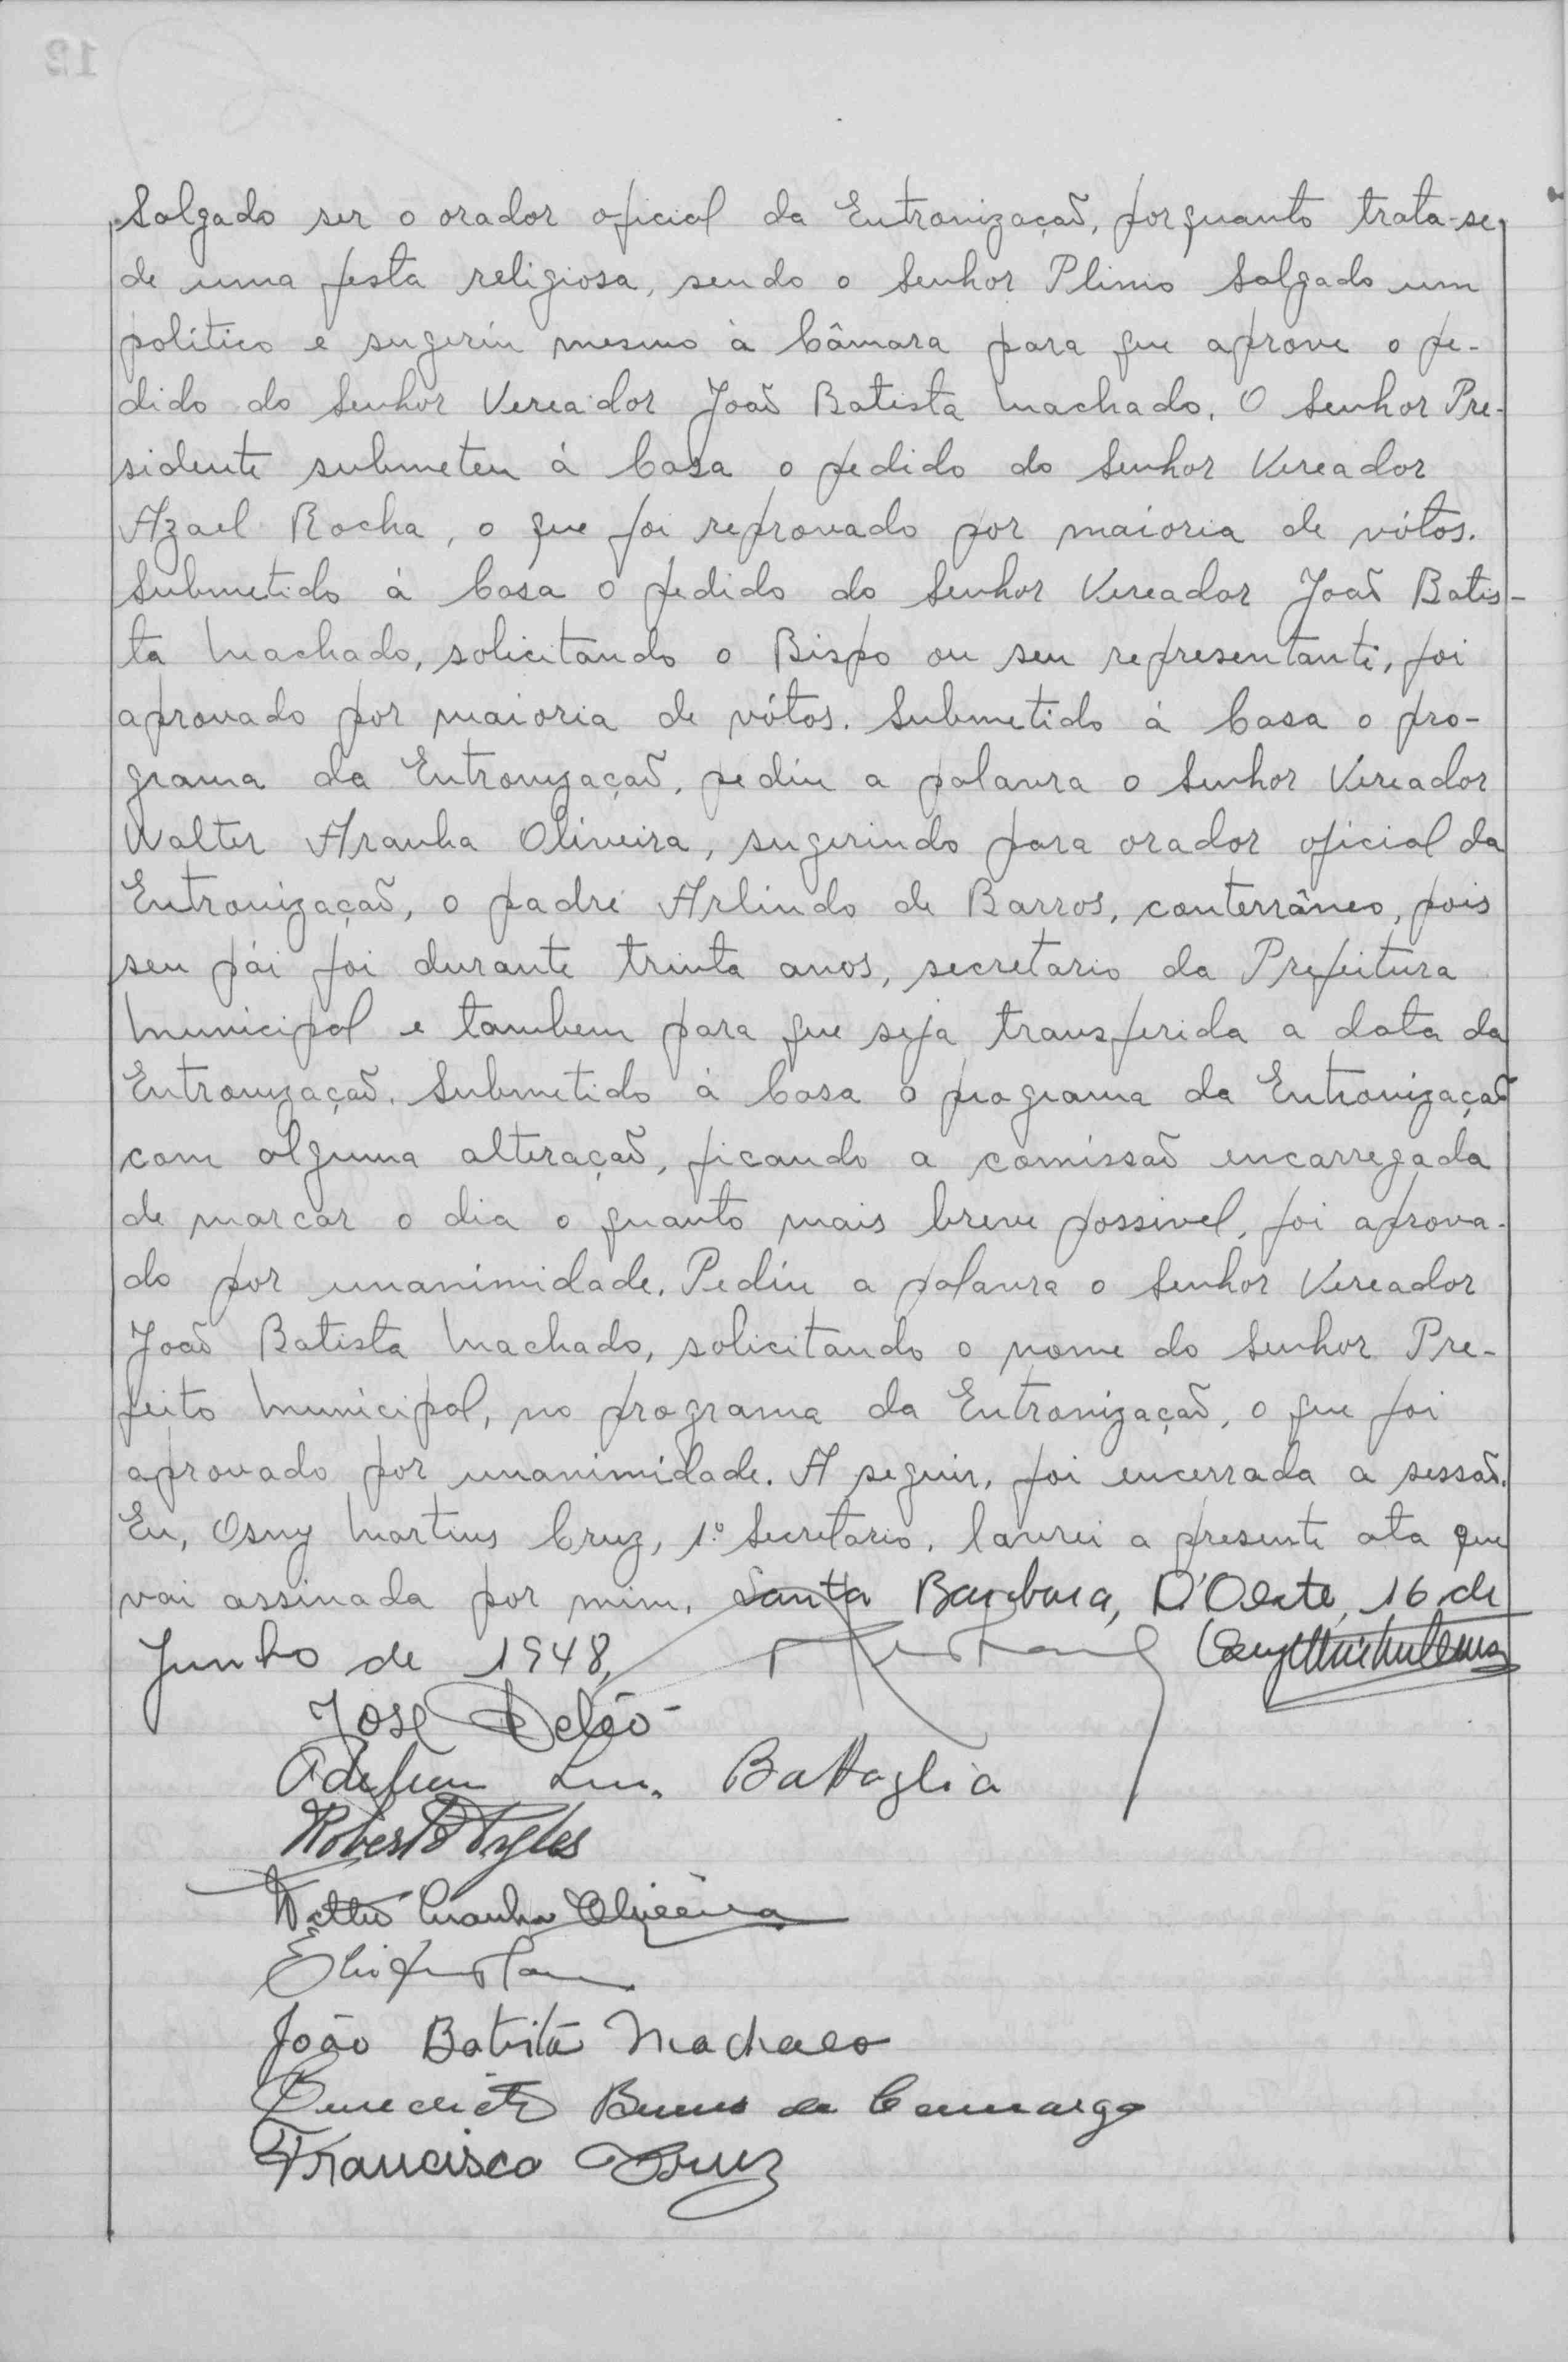 Salgado ser o orador oficial da Entronização, porquanto trata-se
de uma festa religiosa, sendo o Senhor Plinio Salgado um
político e sugeriu mesmo à Câmara para que aprove o pe-
dido do Senhor Vereador João Batista Machado. O Senhor Pre-
sidente submeteu á Casa o pedido do Senhor Vereador
Azael Rocha, o que foi reprovado por maioria de vótos.
Submetido á Casa o pedido do Senhor Vereador João Batis-
ta Machado, solicitando o Bispo ou seu representante, foi
aprovado por maioria de vótos. Submetido á Casa o pro-
grama da Entronização, pediu a palavra o Senhor Vereador
Walter Aranha Oliveira, sugerindo para orador oficial da
Entronização, o padre Arlindo de Barros, conterrâneo, pois
seu pái foi durante trinta anos, secretario da Prefeitura
Municipal e tambem para que seja transferida a data da
Entronização. Submetido á Casa o programa da Entronização
com alguma alteração, ficando a comissão encarregada
de marcar o dia o quanto mais breve possivel, foi aprova-
do por unanimidade. Pediu a palavra o Senhor Vereador
João Batista Machado, solicitando o nome do Senhor Pre-
feito Municipal, no programa da Entronização, o que foi
aprovado por unanimidade. A seguir, foi encerrada a sessão.
Eu, Osny Martins Cruz, 1º Secretario, lavrei a presente ata que
vai assinada por mim. Santa Barbara, D'Oeste, 16 de
Junho de 1948,
José
Battaglia
Roberto
Walter Aranha Oliveira
João Batista Machado
Benedicto Bueno de Camargo
Francisco Cruz
12